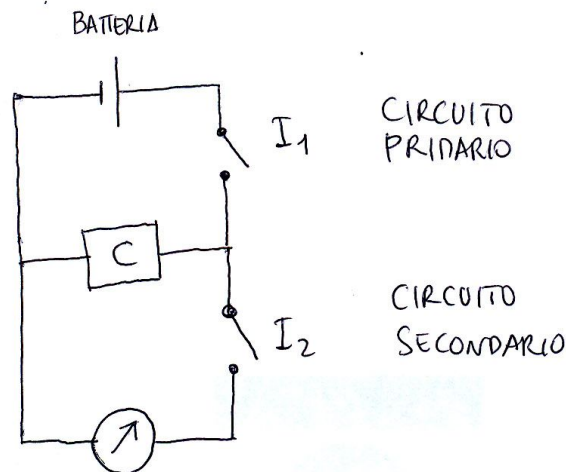 BATTERIA
I1
CIRCUITO
PRIMARIO
C
I2
CIRCUITO
SECONDARIO